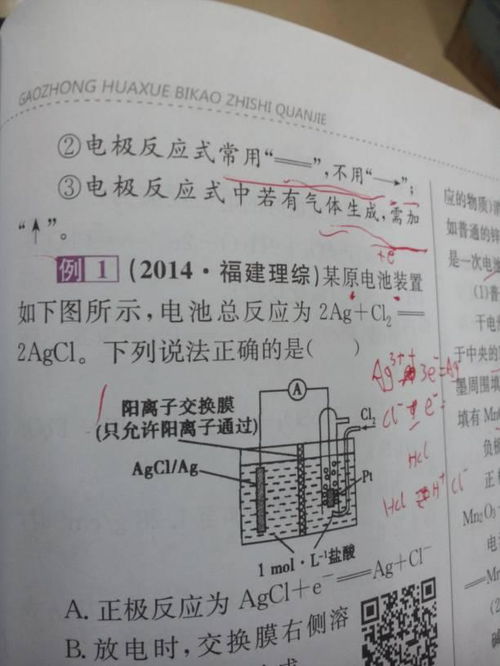 GAOZHONG HUAXUE BIKAO ZHISHI QUANJIE
②电极反应式常用“══”,不用“→”;
③电极反应式中若有气体生成,需加
“↑”。
+e⁻
例1 (2014·福建理综)某原电池装置
如下图所示,电池总反应为 2Ag+Cl₂══
2AgCl。下列说法正确的是( )
阳离子交换膜
(只允许阳离子通过)
A
Cl₂
AgCl/Ag
Pt
1 mol·L⁻¹盐酸
Cl⁻
HCl
HCl
H⁺ Cl⁻
A. 正极反应为 AgCl+e⁻══Ag+Cl⁻
B. 放电时,交换膜右侧溶
应的物质)
如普通的锌
是一次电池
(1)普
干电
于中央的
墨周围填
填有 Mn
负极
正
Mn₂O₃
电
═Mn
(2